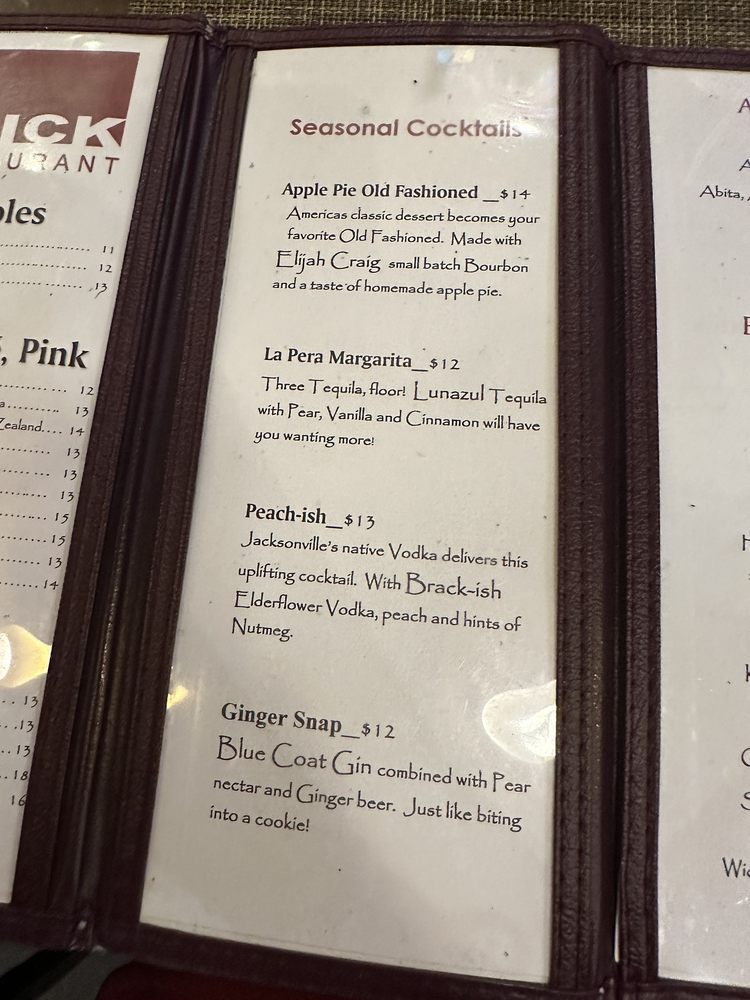 ICK
URANT
bles
11
12
13
, Pink
12
13
Zealand.... 14
13
13
13
15
15
13
14
13
13
13
18
16
Seasonal Cocktails
Apple Pie Old Fashioned __$14
Americas classic dessert becomes your
favorite Old Fashioned. Made with
Elijah Craig small batch Bourbon
and a taste of homemade apple pie.
La Pera Margarita__$12
Three Tequila, floor! Lunazul Tequila
with Pear, Vanilla and Cinnamon will have
you wanting more!
Peach-ish__$13
Jacksonville's native Vodka delivers this
uplifting cocktail. With Brack-ish
Elderflower Vodka, peach and hints of
Nutmeg.
Ginger Snap__$12
Blue Coat Gin combined with Pear
nectar and Ginger beer. Just like biting
into a cookie!
Abita,